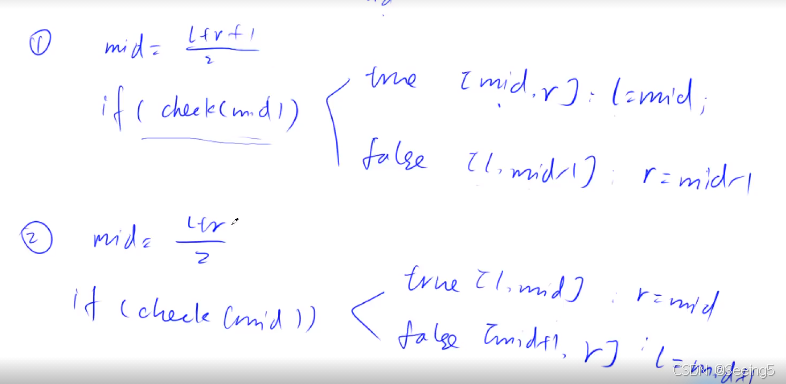 ① mid = (l+r+1)/2
if ( check(mid) )
true [mid, r] : l=mid;
false [l, mid-1] : r=mid-1
② mid = (l+r)/2
if (check(mid))
true [l, mid] : r=mid
false [mid+1, r] : l=mid+1
CSDN @Seeing5